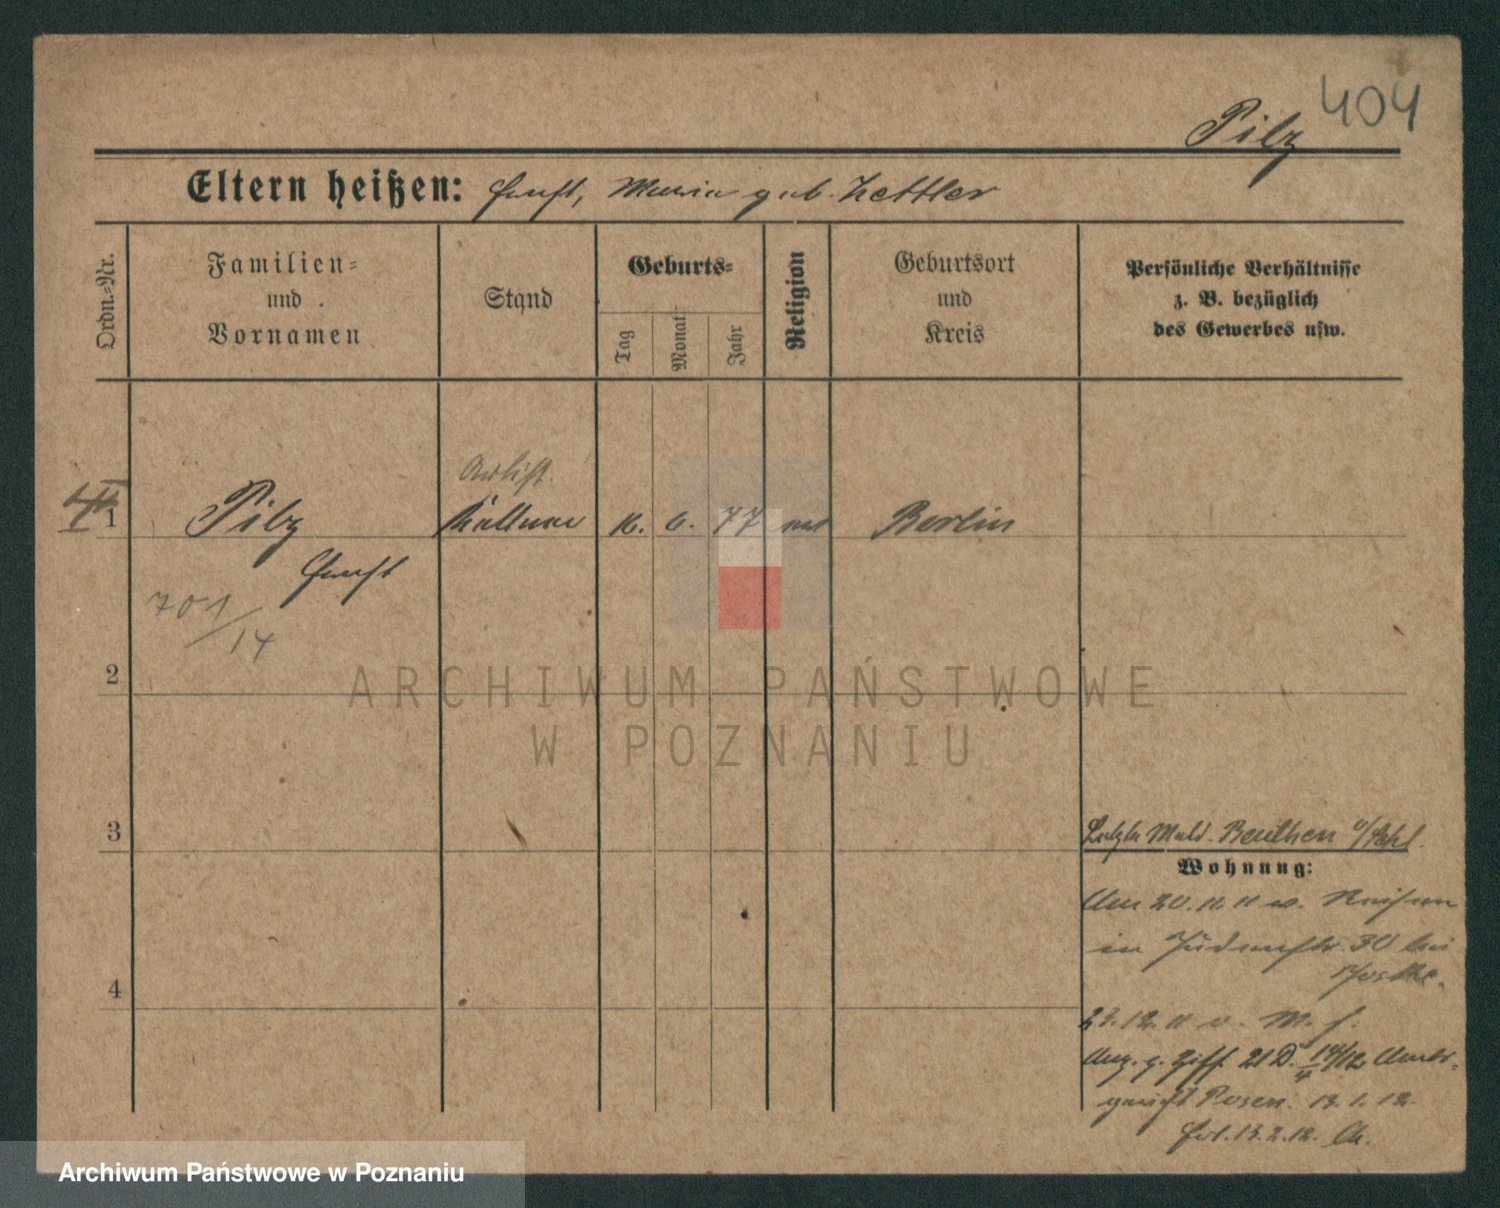 404
Pilz
Eltern heißen: Ernst, Maria geb. Zettler
Ordn.-Nr.
Familien-
und
Vornamen
Stand
Geburts-
Tag
Monat
Jahr
Religion
Geburtsort
und
Kreis
Persönliche Verhältnisse
z. B. bezüglich
des Gewerbes usw.
Artist.
II
1
Pilz
Kellner
6. 77
Berlin
Ernst
701/14
2
ARCHIWUM PAŃSTWOWE
W POZNANIU
3
Letzte Meld. Beuthen O/Schl.
Wohnung:
Am 20. 11. 11 v. Reisen
in Judenstr. 30 bei
4
23. 12. 11 v. M. f.
21 D. 14/12
gericht Posen. 13. 1. 12.
13. 2. 12.
Archiwum Państwowe w Poznaniu